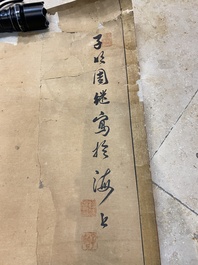 子明周継寫於海上